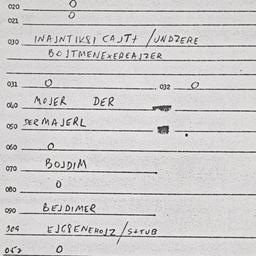 020 O
021 O
030 INAJNTIKSI CAJT+ /UNDZERE
BOJTMENEXEREAJZER
031 O 032 O
040 MOJER DER
050 DER MAJERL
060 O
070 BOJDIM
080 O
090 BEJDIMER
EJGPENEHOJZ/S+TUB
O